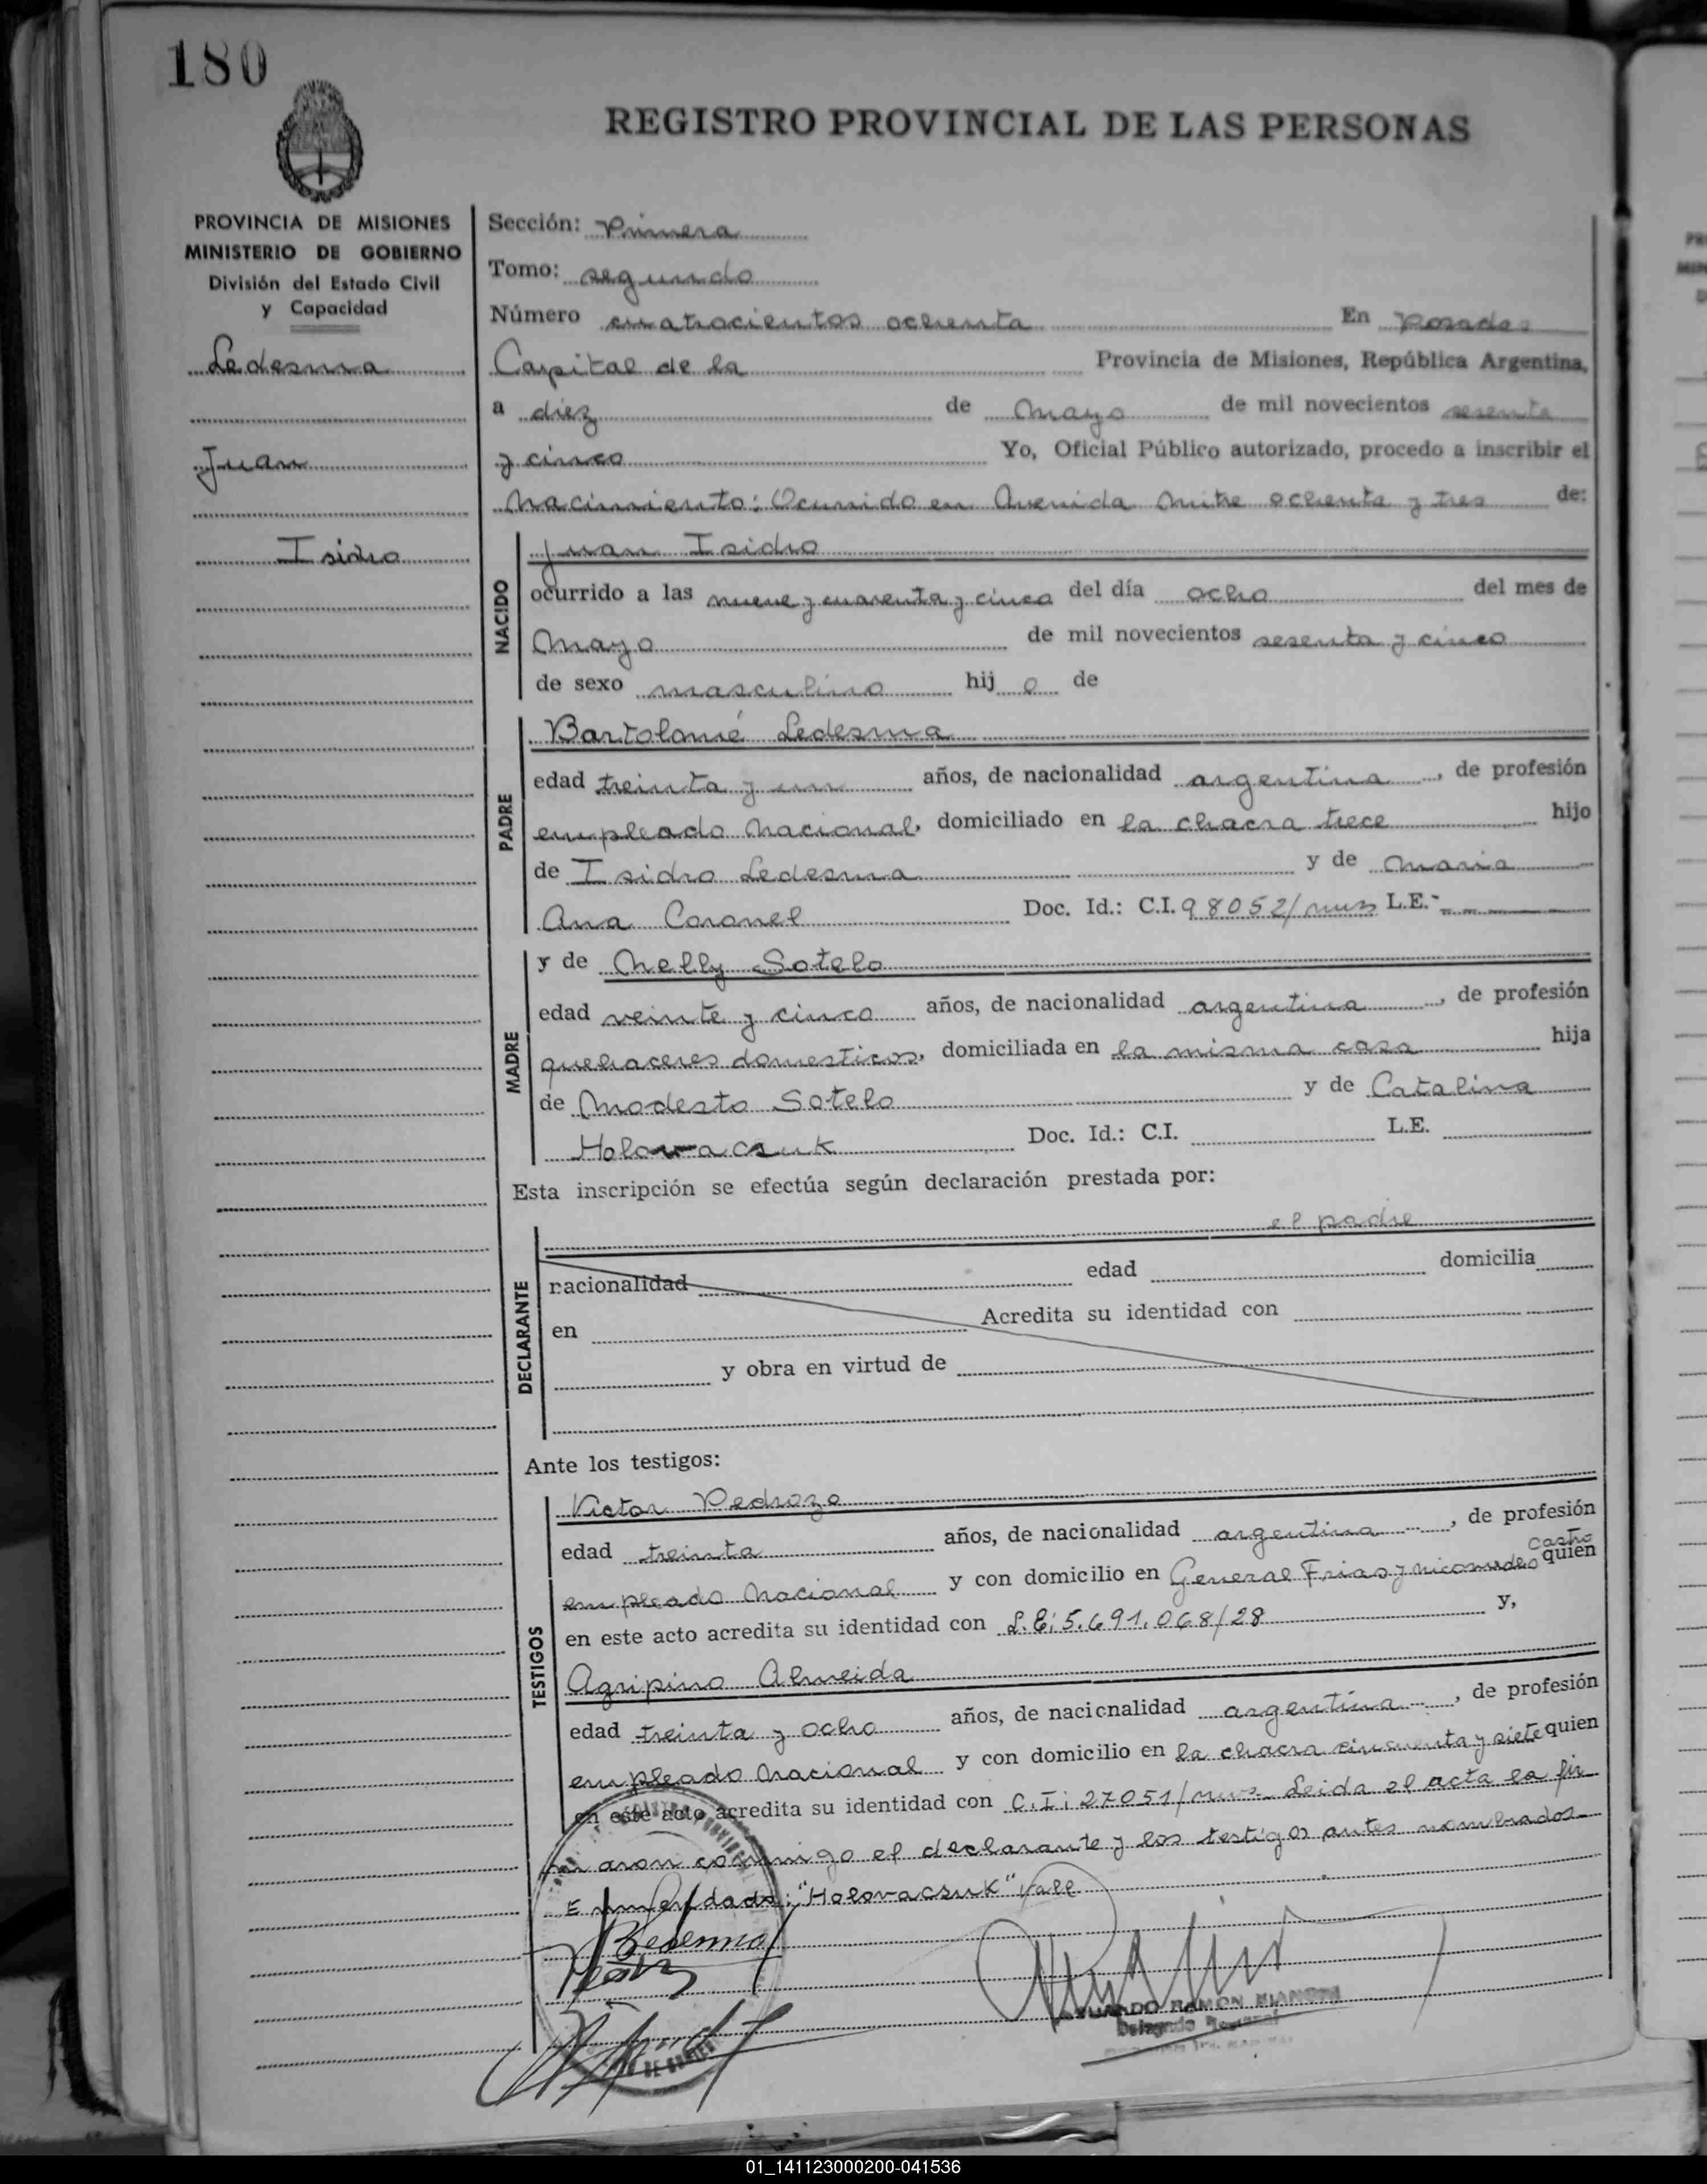 180
REGISTRO PROVINCIAL DE LAS PERSONAS
PROVINCIA DE MISIONES
MINISTERIO DE GOBIERNO
División del Estado Civil
y Capacidad
Ledesma
Juan
Isidro
Sección: Primera
Tomo: segundo
Número cuatrocientos ochenta En Posadas
Capital de la Provincia de Misiones, República Argentina,
a diez de Mayo de mil novecientos sesenta
y cinco Yo, Oficial Público autorizado, procedo a inscribir el
Nacimiento: Ocurrido en Avenida Mitre ochenta y tres de:
NACIDO
Juan Isidro
ocurrido a las nueve y cuarenta y cinco del día ocho del mes de
Mayo de mil novecientos sesenta y cinco
de sexo masculino hij o de
PADRE
Bartolomé Ledesma
edad treinta y un años, de nacionalidad argentina, de profesión
empleado Nacional, domiciliado en la chacra trece hijo
de Isidro Ledesma y de Maria
Ana Coronel Doc. Id.: C.I. 98052/mnes L.E.-
MADRE
y de Nelly Sotelo
edad veinte y cinco años, de nacionalidad argentina, de profesión
quehaceres domesticos, domiciliada en la misma casa hija
de Modesto Sotelo y de Catalina
Holovacsuk Doc. Id.: C.I. L.E.
Esta inscripción se efectúa según declaración prestada por:
el padre
DECLARANTE
nacionalidad edad domicilia
en Acredita su identidad con
y obra en virtud de
Ante los testigos:
TESTIGOS
Victor Pedrozo
edad treinta años, de nacionalidad argentina, de profesión
empleado Nacional y con domicilio en General Frias y nicomedes Castro quien
en este acto acredita su identidad con L.E: 5.691.068/28 y,
Agripino Almeida
edad treinta y ocho años, de nacionalidad argentina, de profesión
empleado Nacional y con domicilio en la chacra cincuenta y siete quien
en este acto acredita su identidad con C.I: 27051/mnes. Leida el acta la fir
maron conmigo el declarante y los testigos antes nombrados
Enmendado: "Holovacsuk" Vale
BLedesma
EDUARDO RAMON BIANCHI
Delegado
01_141123000200-041536